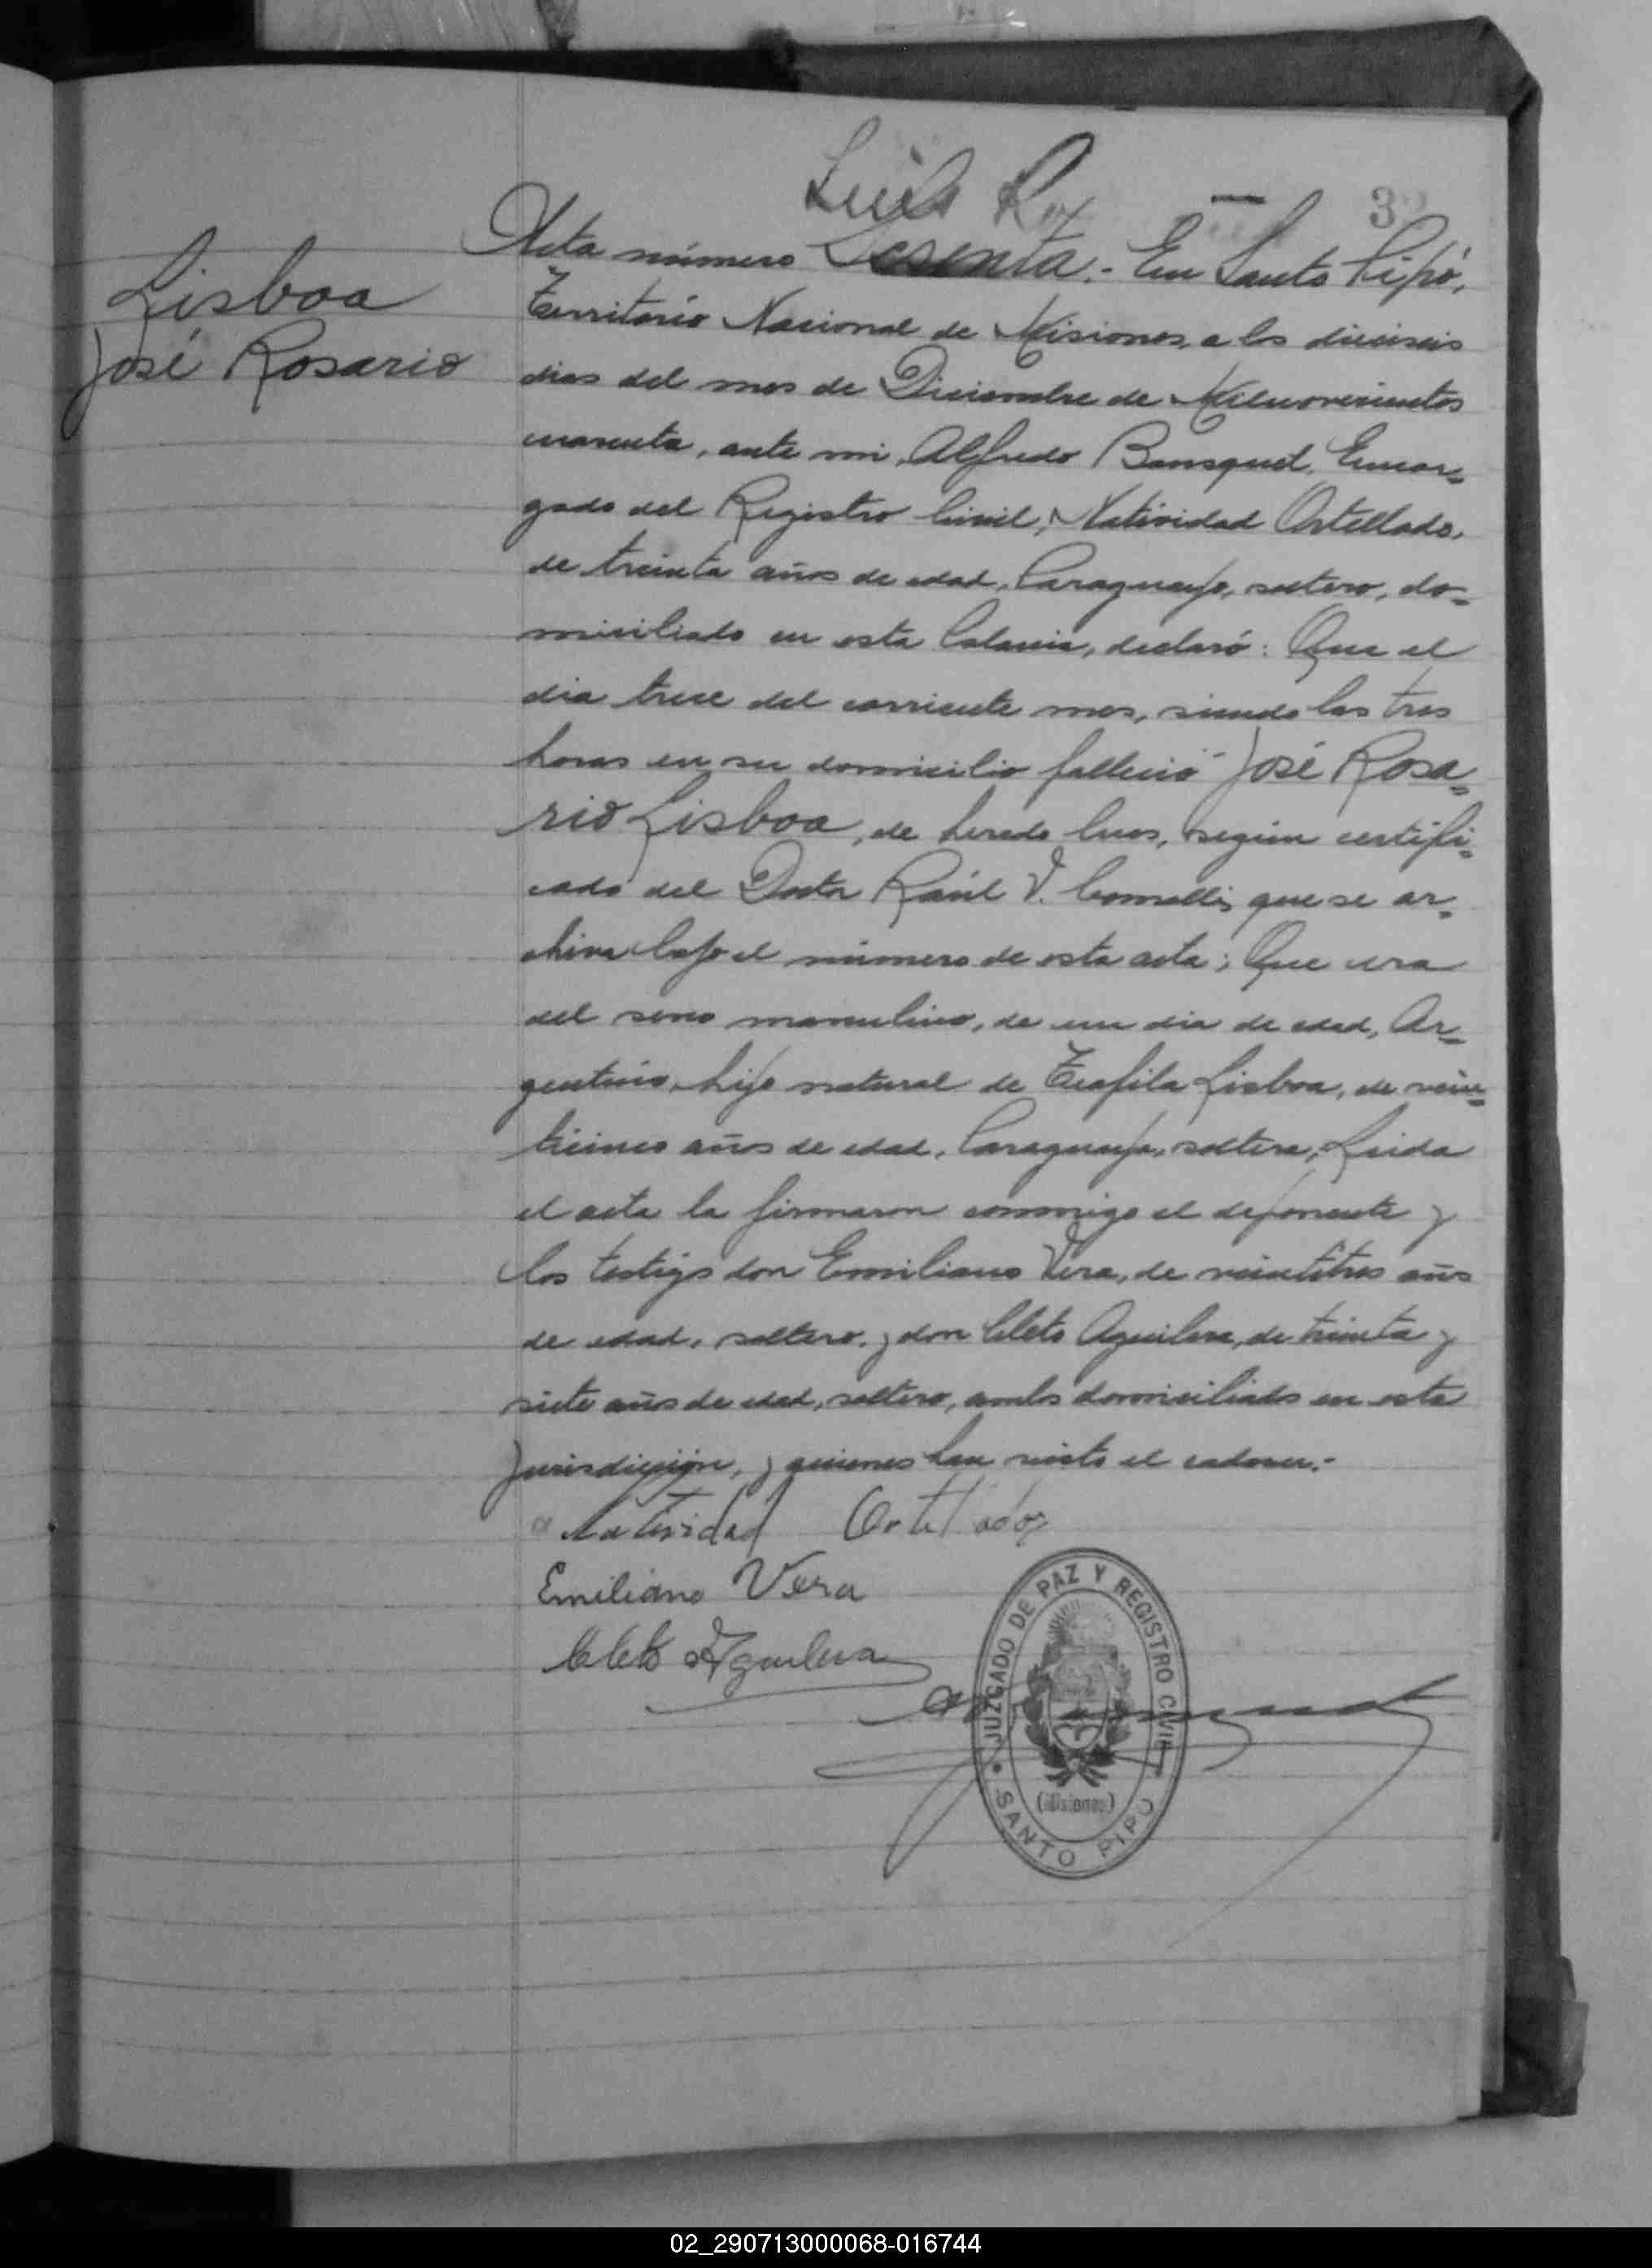 Luis R
3
Lisboa
José Rosario
Acta número Sesenta.- En Santo Pipó,
Territorio Nacional de Misiones, a los dieciseis
dias del mes de Diciembre de Milnovecientos
cuarenta, ante mi, Alfredo Bousquet, Encar=
gado del Registro Civil, Natividad Ortellado,
de treinta años de edad, Paraguayo, soltero, do=
miciliado en esta Colonia, declaró: Que el
dia trece del corriente mes, siendo las tres
horas en su domicilio falleció José Rosa=
rio Lisboa, de heredo lues, según certifi=
cado del Doctor Raúl V. que se ar=
chiva bajo el número de esta acta; Que era
del sexo masculino, de un dia de edad, Ar=
gentino, hijo natural de Teofila Lisboa, de vein=
ticinco años de edad, Paraguaya, soltera; Leida
el acta la firmaron conmigo el deponente y
los testigo don Emiliano Vera, de veintitres años
de edad, soltero, y don Cleto Aguilera, de treinta y
siete años de edad, soltero, ambos domiciliados en esta
jurisdicción, y quienes han visto el cadaver.-
Natividad Ortellado
Emiliano Vera
Cleto Aguilera
JUZGADO DE PAZ Y REGISTRO CIVIL
(Misiones)
SANTO PIPO
02_290713000068-016744